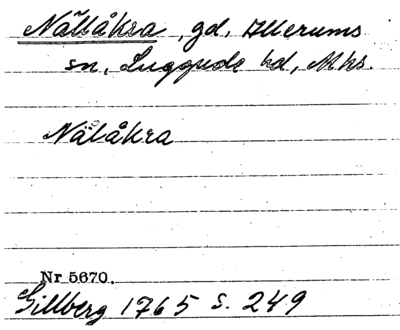 Nällåkra, gd, Allerums
sn, Luggude hd, Mhs.
Nälåkra
Nr 5670.
Gillberg 1765 s. 249